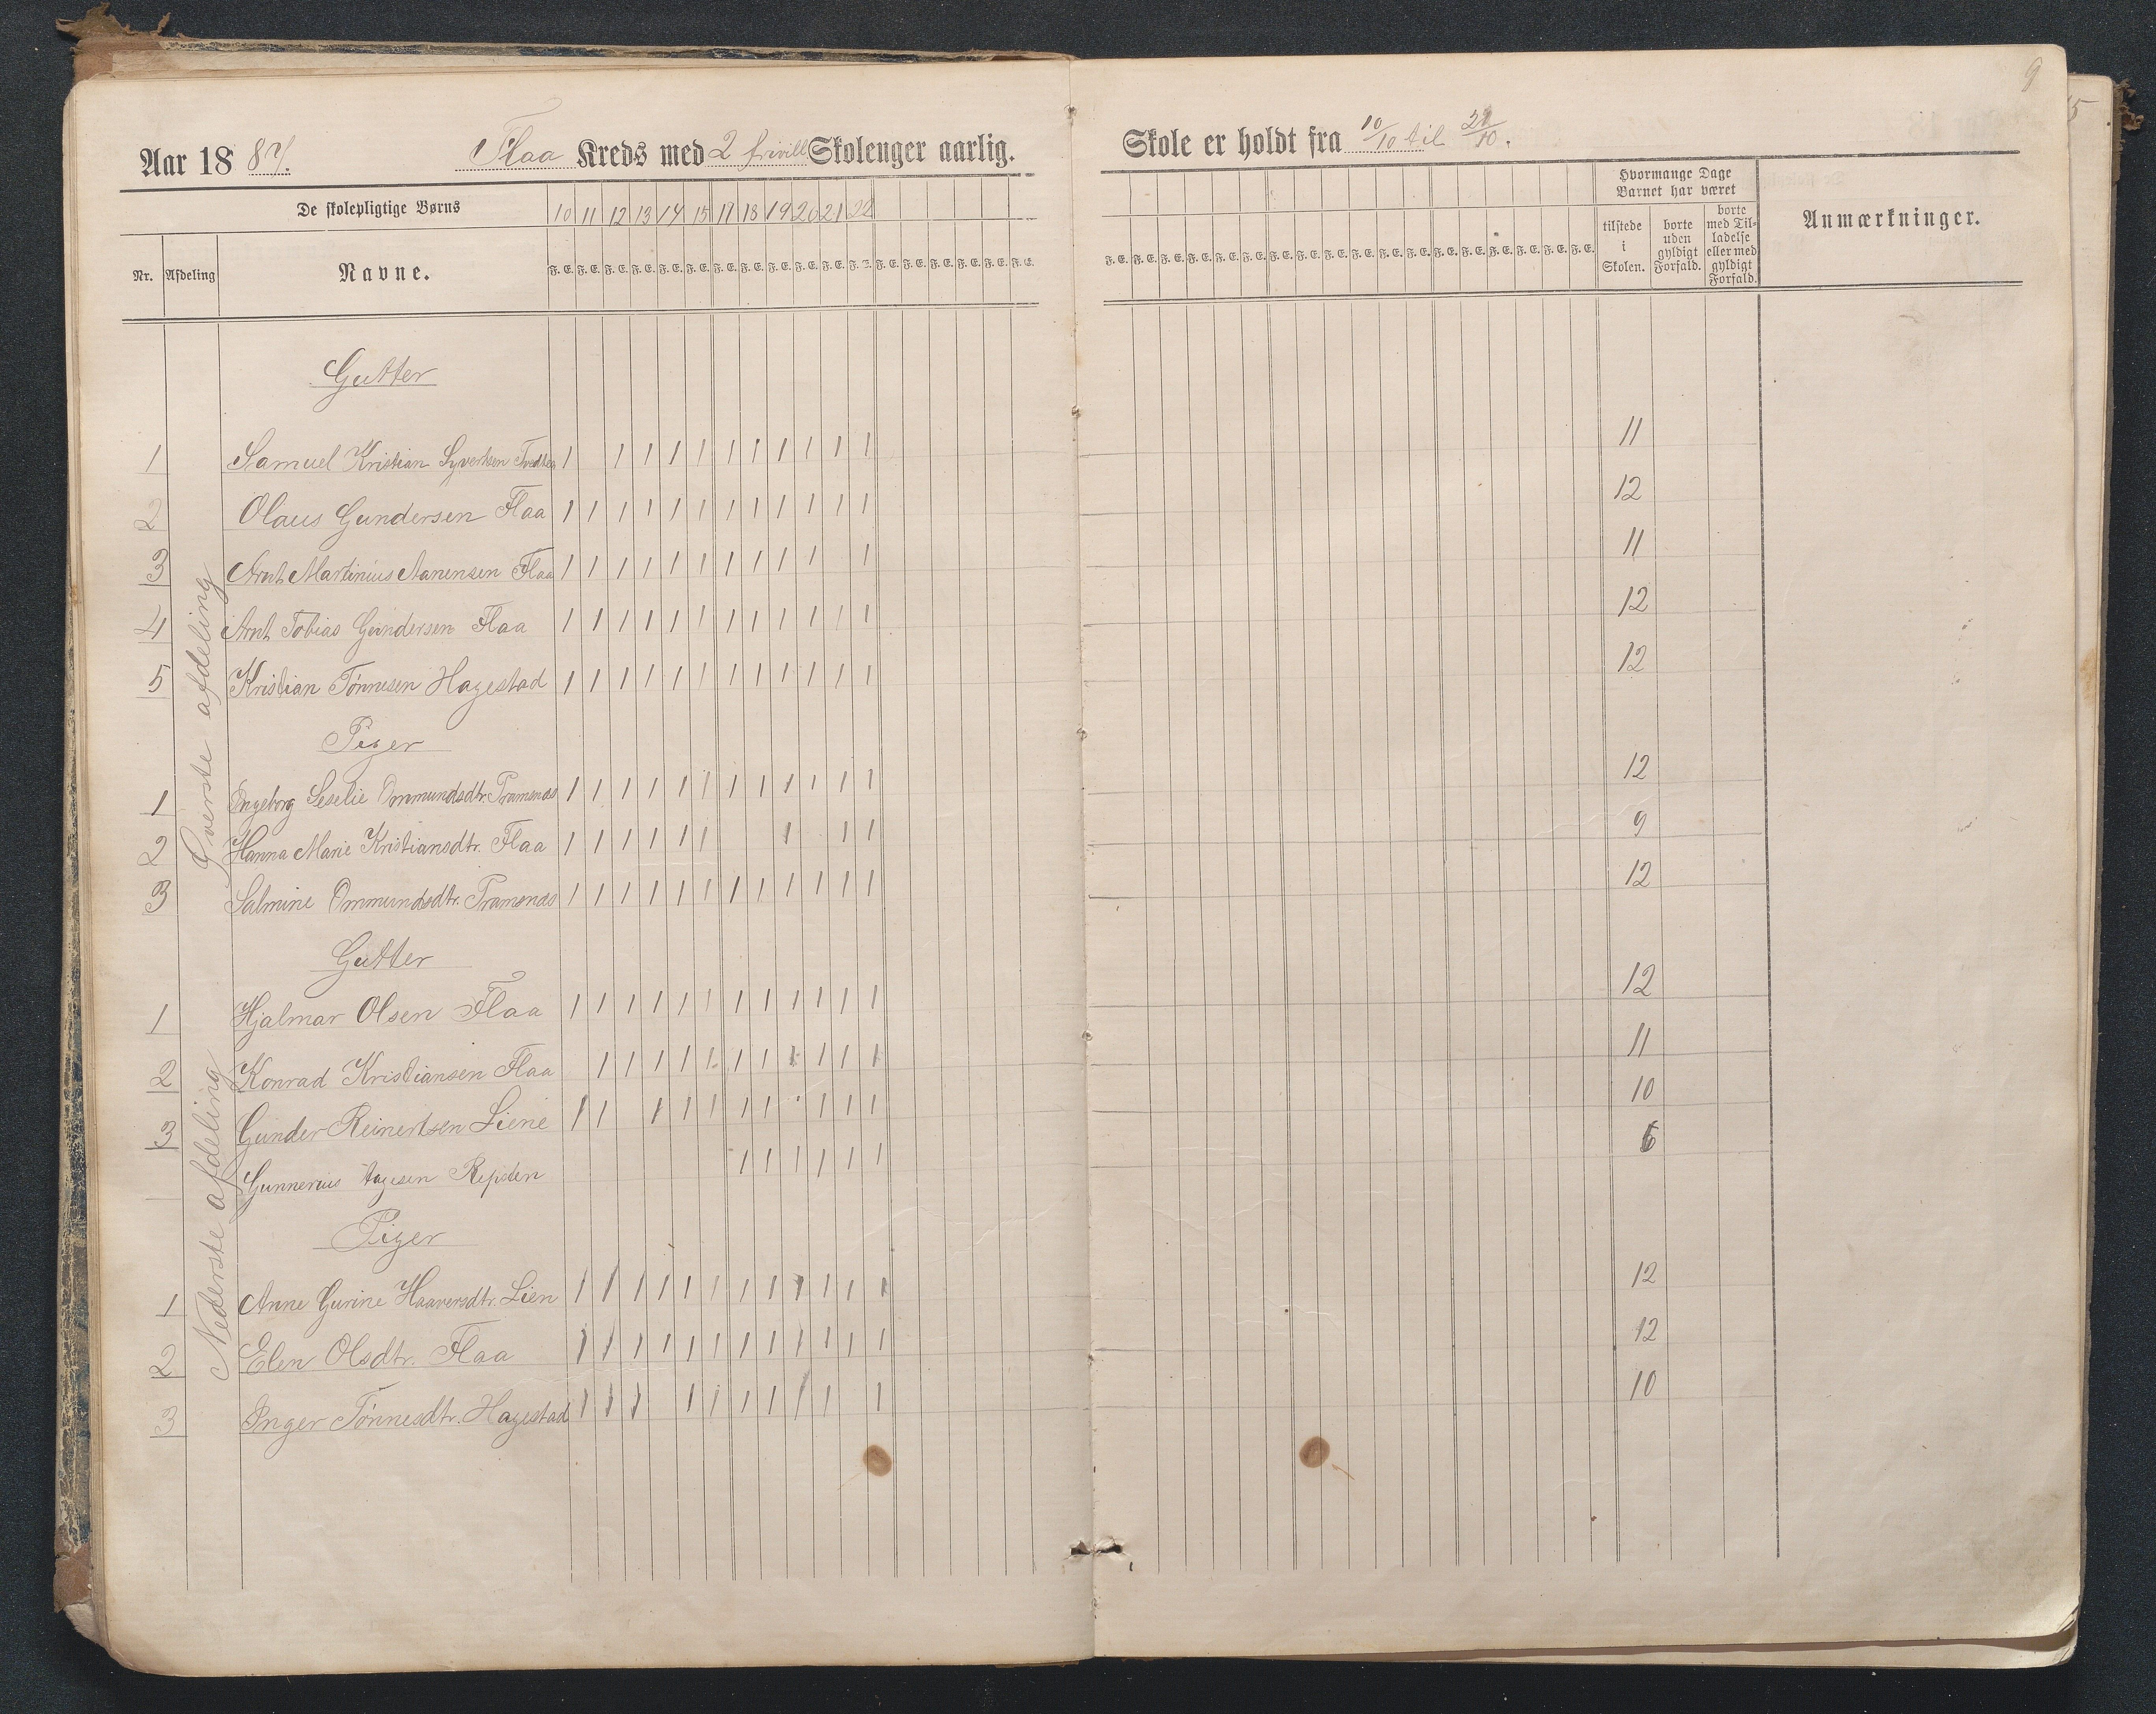 9
15
Aar 1887. Flaa Kreds med 2 frivill Skolenger aarlig. Skole er holdt fra 10/10 til 22/10.
De skolepligtige Børns
10 11 12 13 14 15 17 18 19 20 21 22
Nr. Afdeling Navne.
F. E. F. E. F. E. F. E. F. E. F. E. F. E. F. E. F. E. F. E. F. E. F. E. F. E. F. E. F. E. F. E. F. E. F. E.
F. E. F. E. F. E. F. E. F. E. F. E. F. E. F. E. F. E. F. E. F. E. F. E. F. E. F. E. F. E. F. E. F. E. F. E.
Hvormange Dage
Barnet har været
tilstede i Skolen.
borte uden gyldigt Forfald.
borte med Tilladelse eller med gyldigt Forfald.
Anmærkninger.
Øverste afdeling
Gutter
1 Samuel Kristian Syvertsen 1 1 1 1 1 1 1 1 1 1 1 11
2 Olaus Gundersen Flaa 1 1 1 1 1 1 1 1 1 1 1 1 12
3 Arnt Martinius Aanensen Flaa 1 1 1 1 1 1 1 1 1 1 1 11
4 Arnt Tobias Gundersen Flaa 1 1 1 1 1 1 1 1 1 1 1 1 12
5 Kristian Tønnesen Hagestad 1 1 1 1 1 1 1 1 1 1 1 1 12
Piger
1 Ingeborg Seselie Ommundsdtr. Tramsnes 1 1 1 1 1 1 1 1 1 1 1 1 12
2 Hanna Marie Kristiansdtr. Flaa 1 1 1 1 1 1 1 1 1 9
3 Salmine Ommundsdtr. Tramsnes 1 1 1 1 1 1 1 1 1 1 1 1 12
Nederste afdeling
Gutter
1 Hjalmar Olsen Flaa 1 1 1 1 1 1 1 1 1 1 1 1 12
2 Konrad Kristiansen Flaa 1 1 1 1 1 1 1 1 1 1 1 11
3 Gunder Reinertsen Liene 1 1 1 1 1 1 1 1 1 1 10
Gunnerius Aagesen Repsden 1 1 1 1 1 1 6
Piger
1 Anne Gurine Haaversdtr. Lien 1 1 1 1 1 1 1 1 1 1 1 1 12
2 Elen Olsdtr. Flaa 1 1 1 1 1 1 1 1 1 1 1 1 12
3 Inger Tønnesdtr. Hagestad 1 1 1 1 1 1 1 1 1 1 10